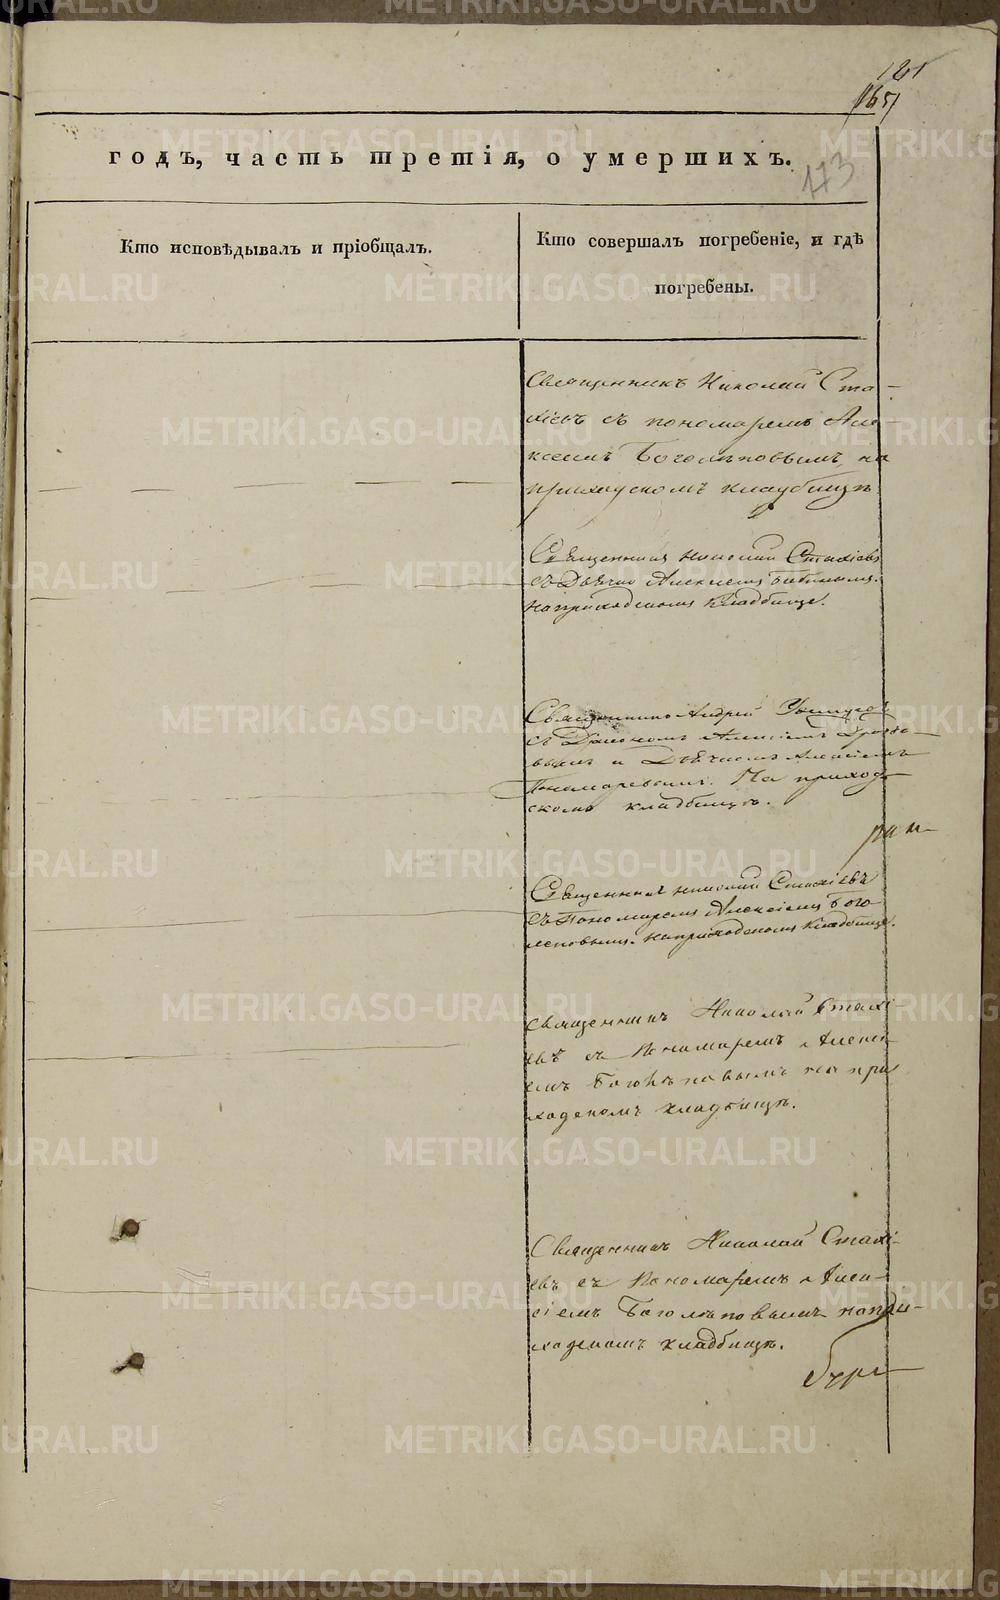 121
165
173
годъ, часть третія, о умершихъ.
Кто исповѣдывалъ и пріобщалъ.
Кто совершалъ погребеніе, и гдѣ
погребены.
Священникъ Николай Ста-
хіевъ съ пономаремъ Але-
ксеемъ Боголѣповымъ, на
приходскомъ кладбищѣ
Священникъ Николай Стахіевъ
съ Дьячко Алексіемъ
На приходскомъ кладбище.
Священникъ Андрей
съ Діакономъ Алексіемъ
вымъ и Дьячкомъ Алексіемъ
Пономаревымъ. На приход-
скомъ кладбищѣ.
Священникъ Николай Стахіевъ
съ Пономаремъ Алексіемъ Бого
леповымъ. на приходскомъ кладбище.
Священникъ Николай Стахі-
евъ съ Пономаремъ Алексі
емъ Боголѣповымъ на при
ходскомъ кладбищѣ.
Священникъ Николай Стахі-
евъ съ Пономаремъ Алек-
сіемъ Боголѣповымъ на при-
ходскомъ кладбищѣ.
METRIKI.GASO-URAL.RU